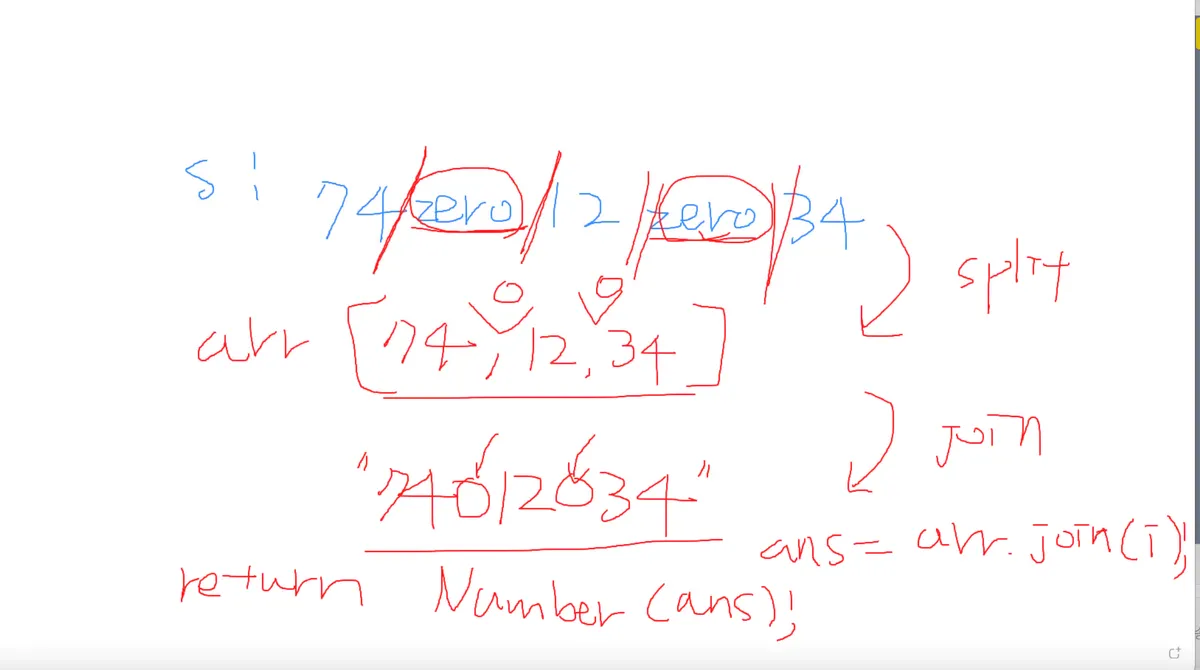 s : 74/zero/12/zero/34
split
0 0
arr [74, 12, 34]
join
"74012034"
ans = arr.join(i);
return Number(ans);